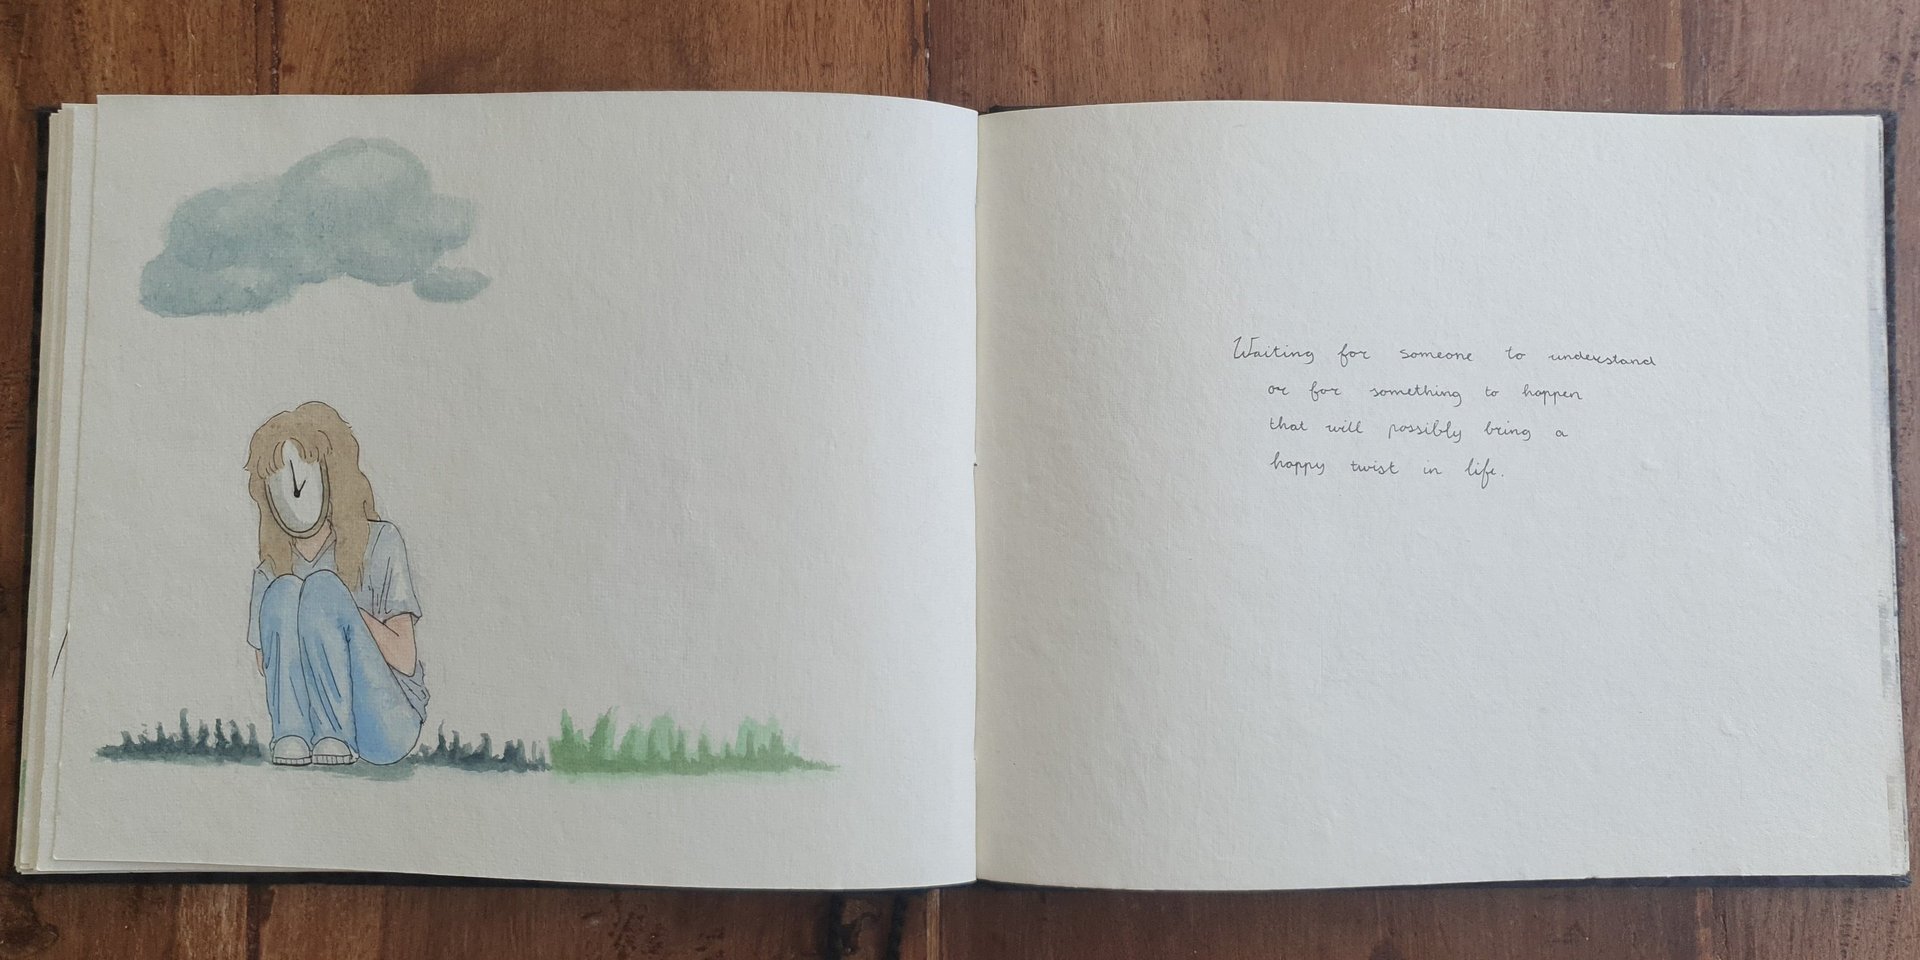 Waiting for someone to understand
or for something to happen
that will possibly bring a
happy twist in life.